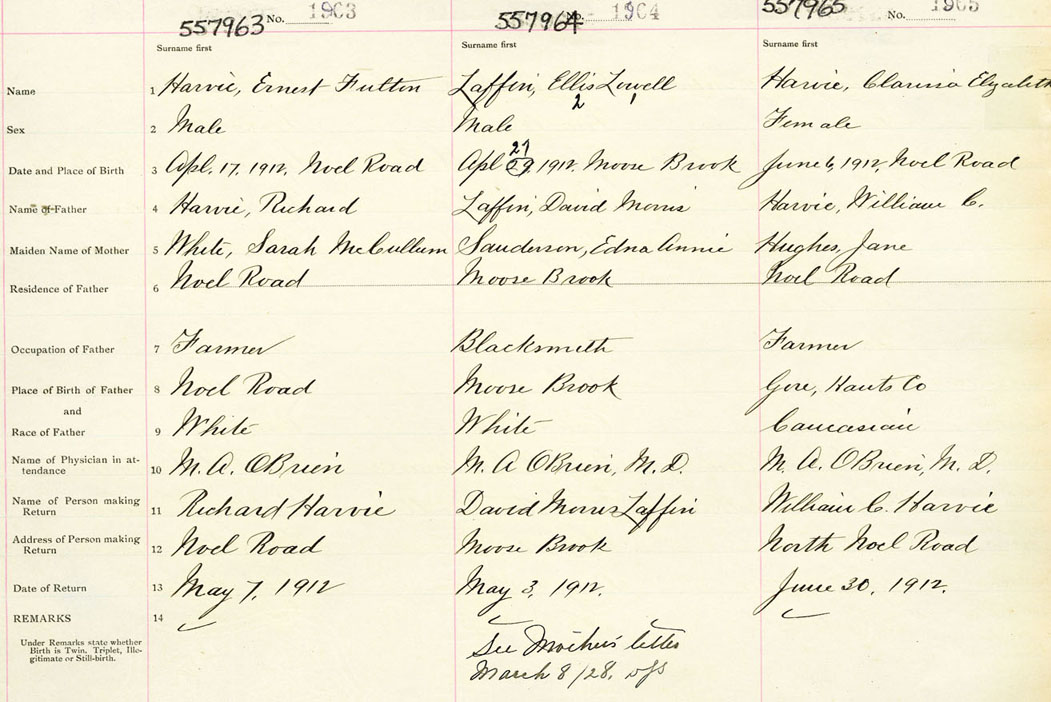 557963 No. 1963 557964 No. 1964 557965 No. 1965
Surname first Surname first Surname first
Name 1 Harvie, Ernest Fulton Laffin, Ellis Lowell Harvie, Clarissa Elizabeth
2 1
Sex 2 Male Male Female
27
Date and Place of Birth 3 Apl. 17, 1912, Noel Road Apl 29, 1912 Moose Brook June 6, 1912, Noel Road
Name of Father 4 Harvie, Richard Laffin, David Morris Harvie, William C.
Maiden Name of Mother 5 White, Sarah McCullum Sanderson, Edna Annie Hughes, Jane
Residence of Father 6 Noel Road Moose Brook Noel Road
Occupation of Father 7 Farmer Blacksmith Farmer
Place of Birth of Father 8 Noel Road Moose Brook Gore, Hants Co
and
Race of Father 9 White White Caucasian
Name of Physician in at-
tendance 10 M. A. O'Brien M. A O'Brien, M. D. M. A. O'Brien, M. D.
Name of Person making
Return 11 Richard Harvie David Morris Laffin William C. Harvie
Address of Person making
Return 12 Noel Road Moose Brook North Noel Road
Date of Return 13 May 7, 1912 May 3, 1912. June 30, 1912.
REMARKS 14
Under Remarks state whether
Birth is Twin, Triplet, Ille-
gitimate or Still-birth.
See Mother's letter
March 8/28.